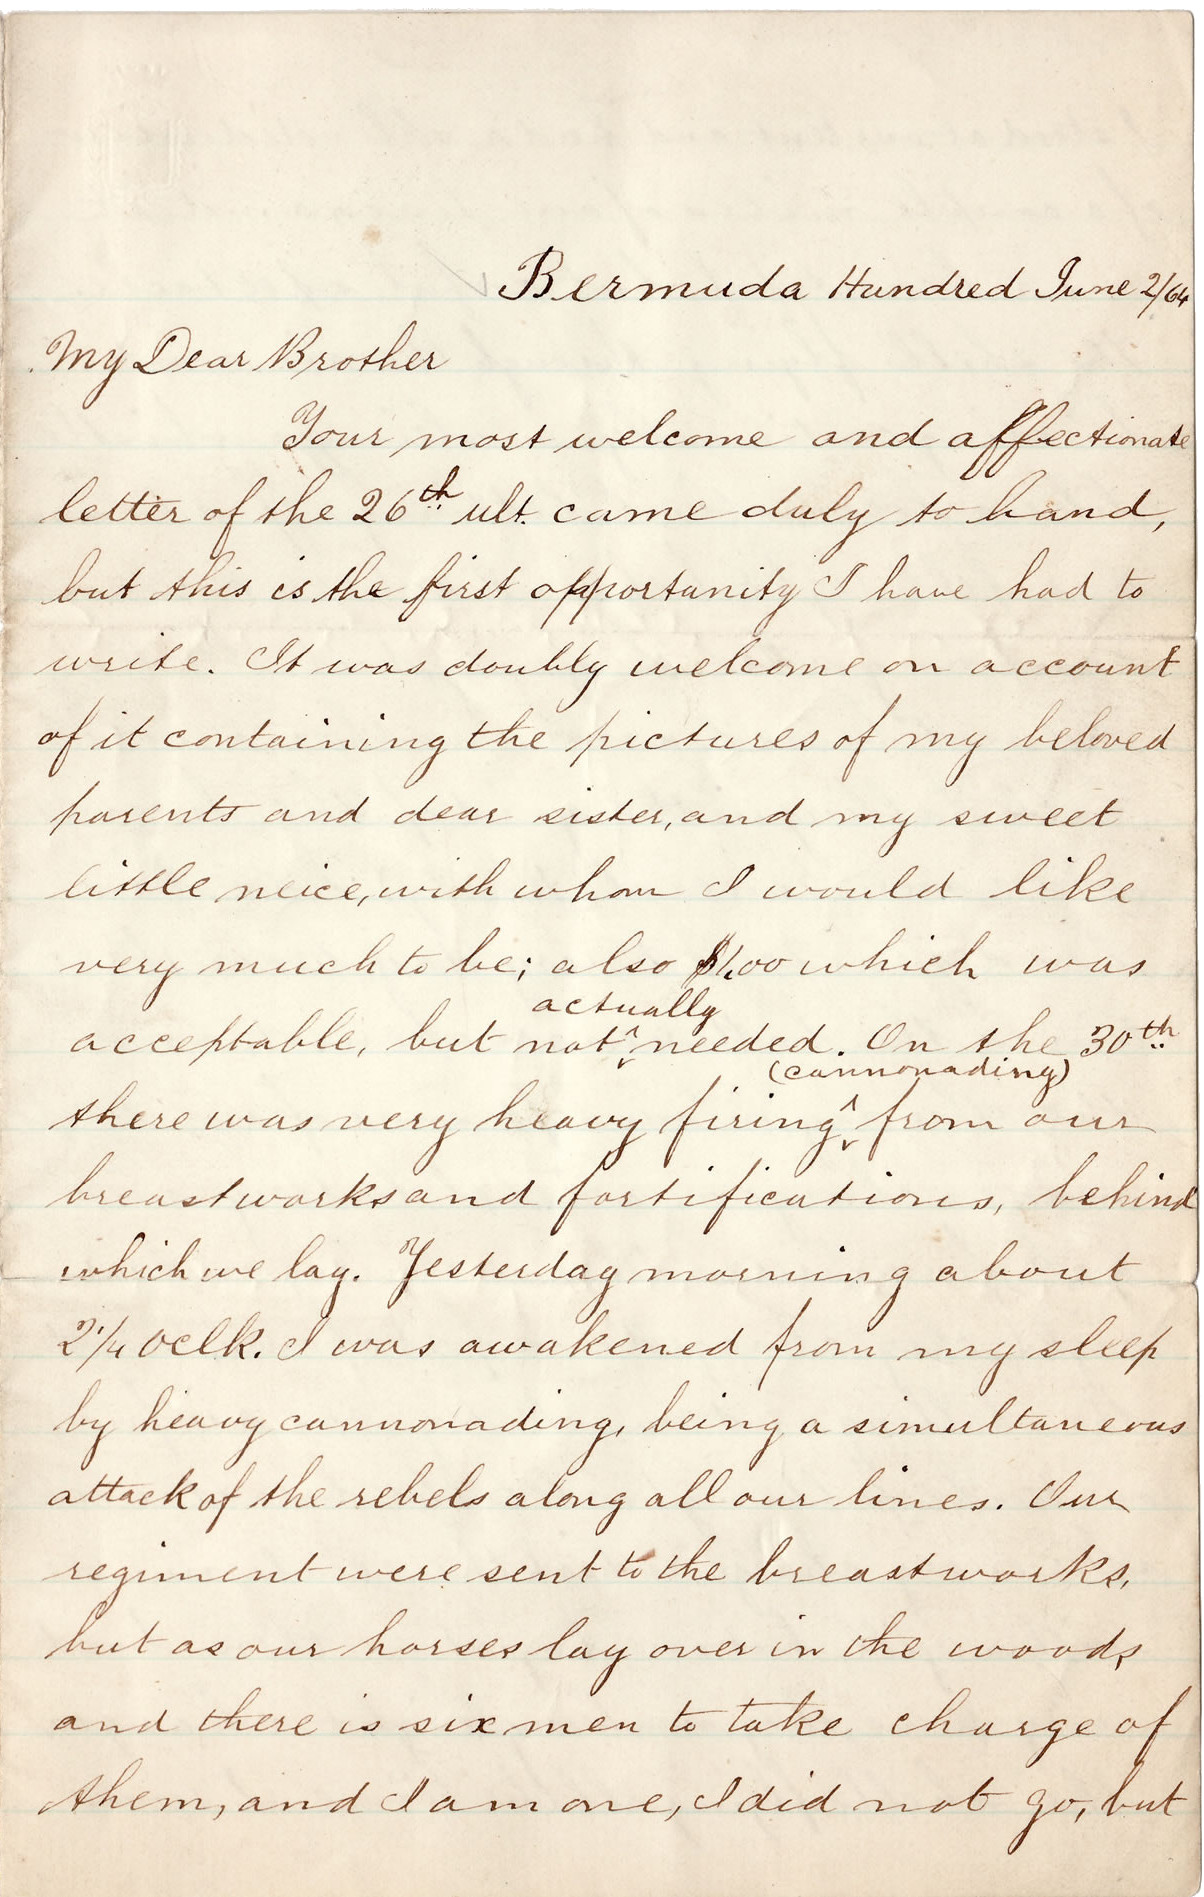 Bermuda Hundred June 2/64
My Dear Brother
Your most welcome and affectionate
letter of the 26th ult. came duly to hand,
but this is the first opportunity I have had to
write. It was doubly welcome on account
of it containing the pictures of my beloved
parents and dear sister, and my sweet
little neice, with whom I would like
very much to be; also $1,00 which was
actually
acceptable, but not needed. On the 30th
(cannonading)
there was very heavy firing from our
breastworks and fortifications, behind
which we lay. Yesterday morning about
2 1/4 oclk. I was awakened from my sleep
by heavy cannonading, being a simultaneous
attack of the rebels along all our lines. Our
regiment were sent to the breastworks,
but as our horses lay over in the woods,
and there is six men to take charge of
them, and I am one, I did not go, but